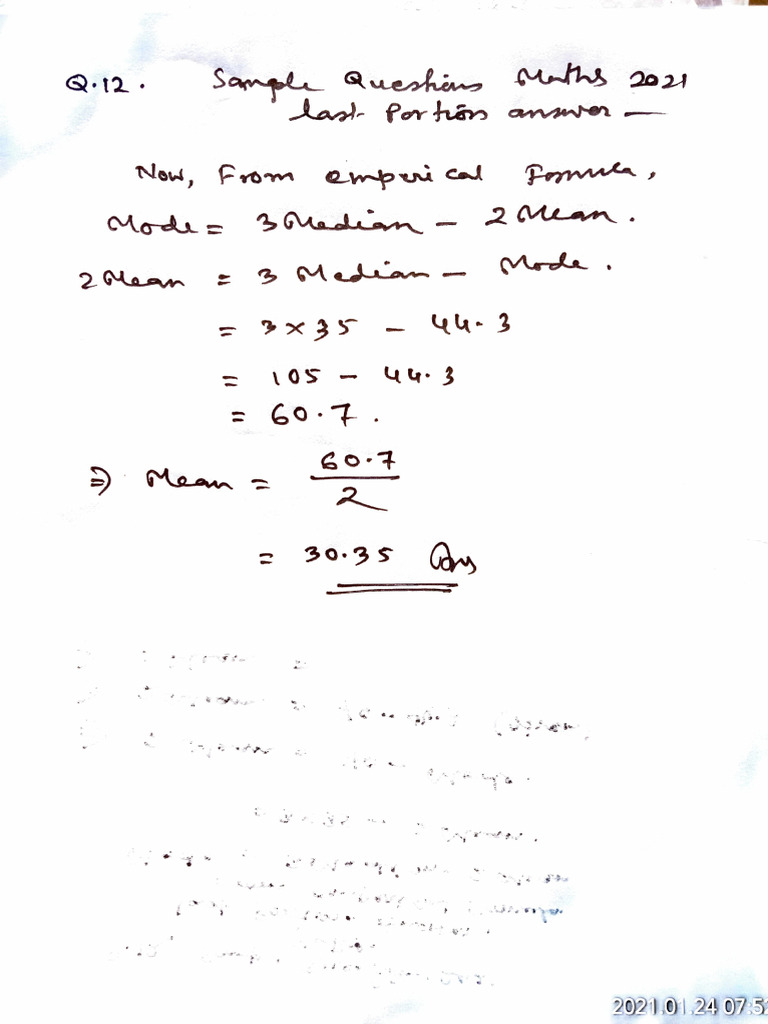 Q.12. Sample Questions Maths 2021
last Portion answer —
Now, From emperical Formula,
Mode = 3 Median — 2 Mean.
2 Mean = 3 Median — Mode.
= 3 × 35 — 44.3
= 105 — 44.3
= 60.7.
⇒ Mean = 60.7 / 2
= 30.35 Ans
2021.01.24 07:5